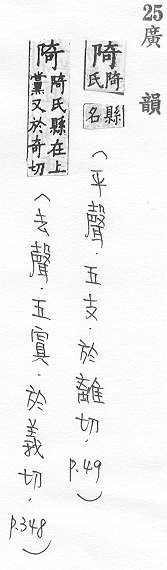 25 廣韻
陭 陭氏縣名（平聲．五支．於離切．p.49）
陭 陭氏縣在上黨又於奇切（去聲．五寘．於義切．p.348）